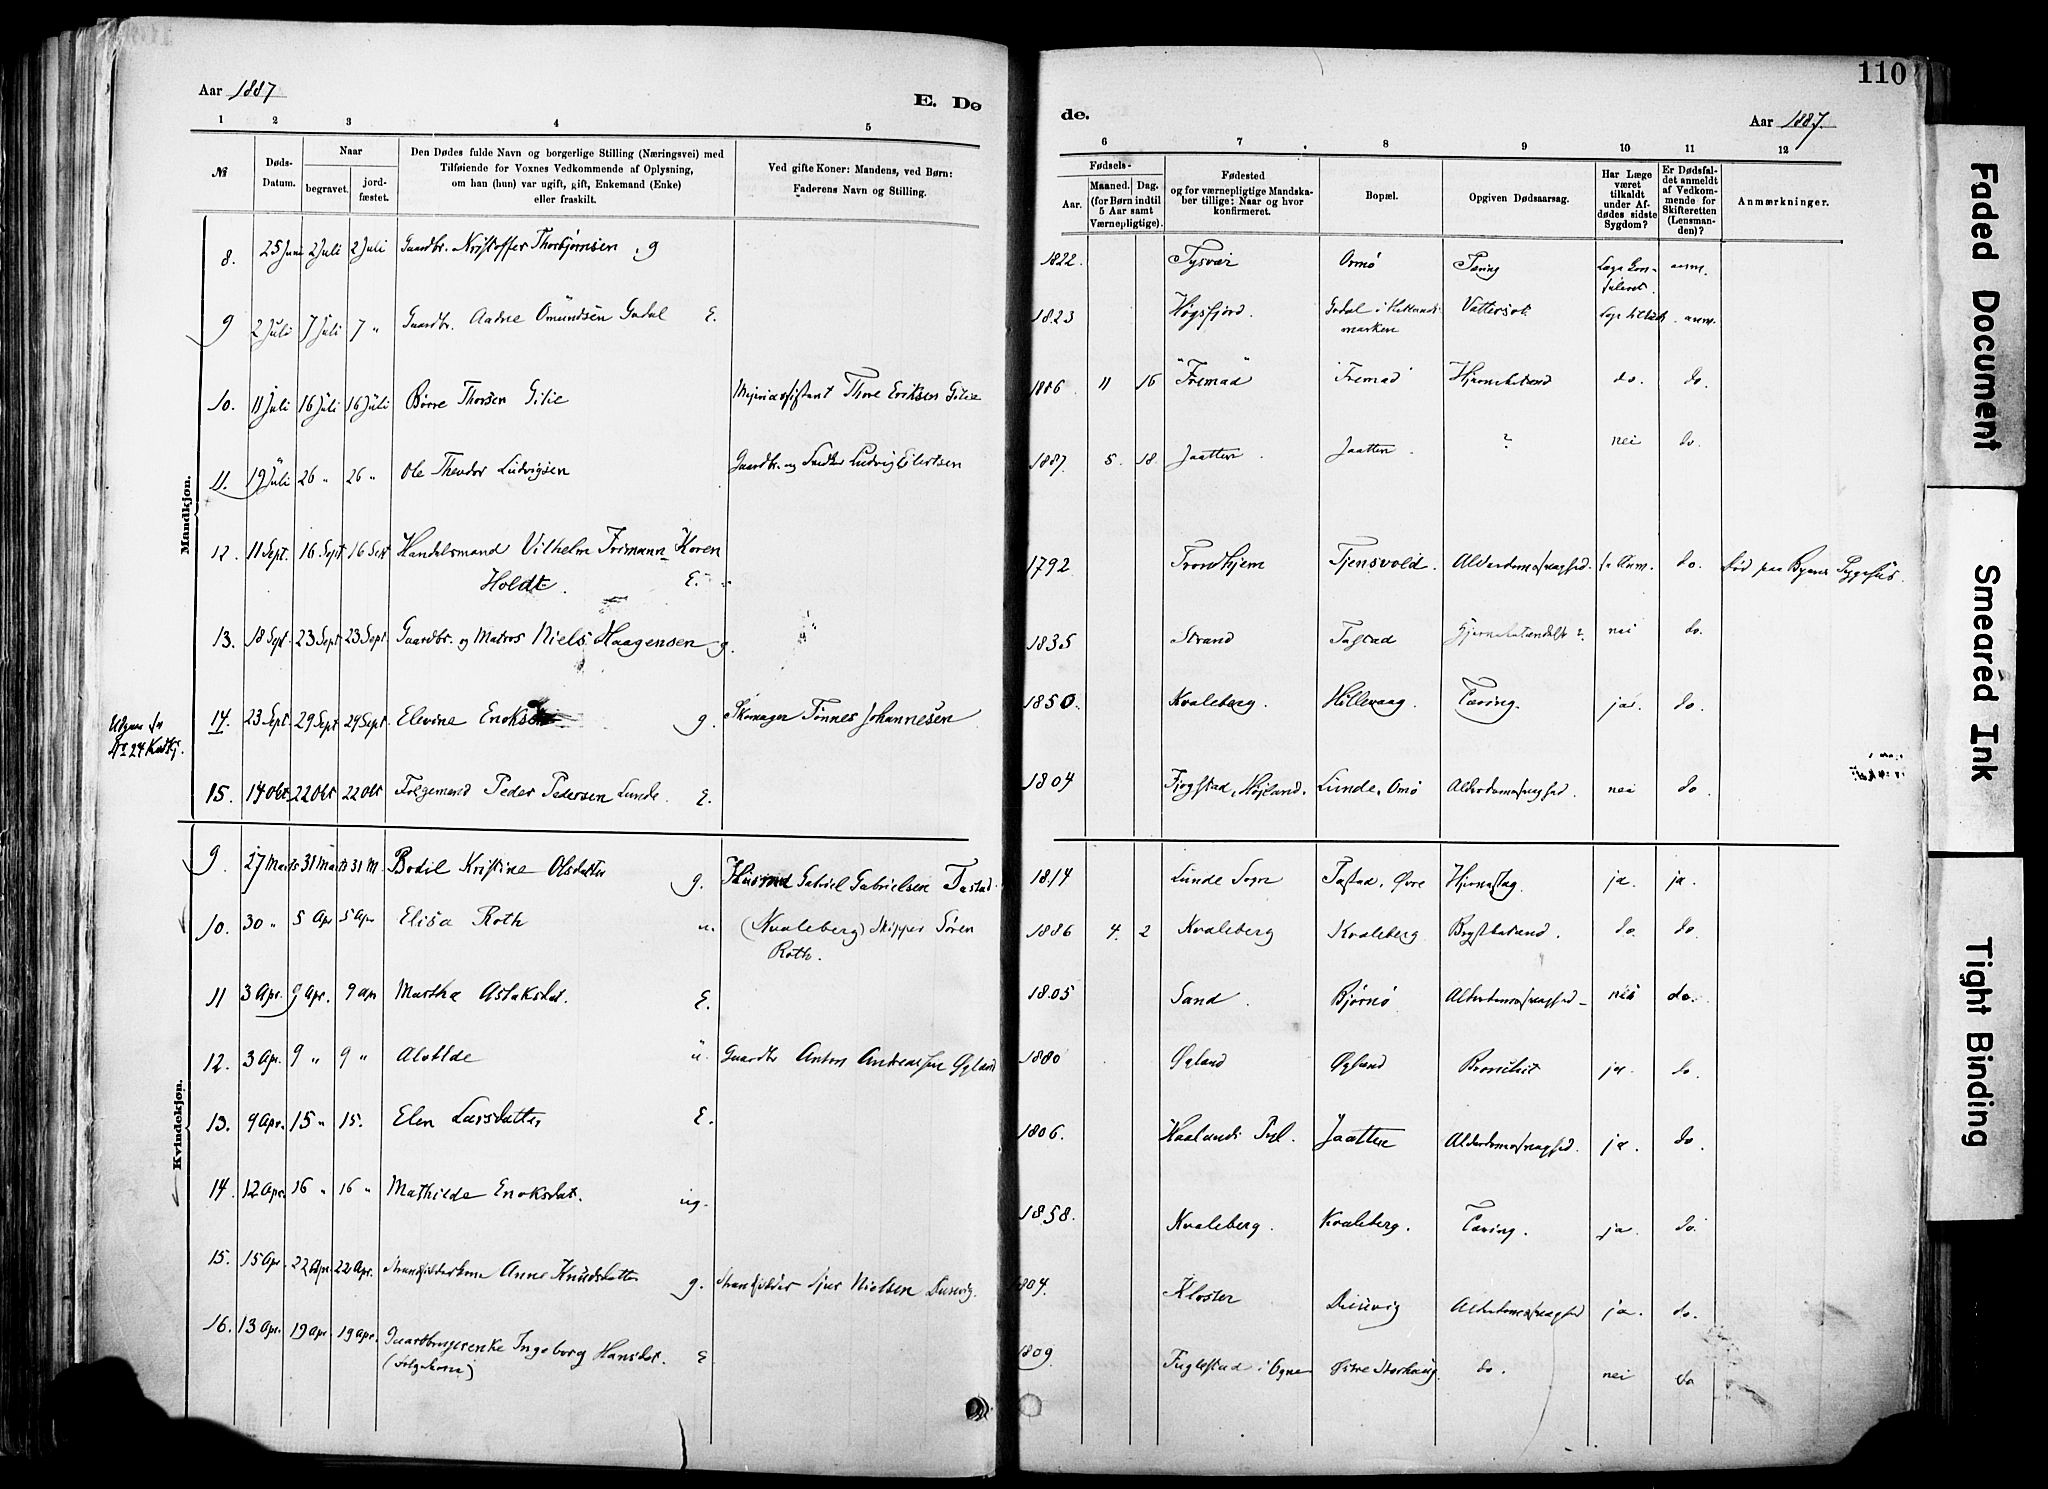 Aar 1887
E. Dø
de.
Aar 1887.
110
1 2 3 4 5
6 7 8 9 10 11 12
№
Døds-Datum.
Naar
begravet.
jordfæstet.
Den Dødes fulde Navn og borgerlige Stilling (Næringsvei) med
Tilføiende for Voxnes Vedkommende af Oplysning,
om han (hun) var ugift, gift, Enkemand (Enke)
eller fraskilt.
Ved gifte Koner: Mandens, ved Børn:
Faderens Navn og Stilling.
Fødsels-
Aar.
Maaned. Dag.
(for Børn indtil
5 Aar samt
Værnepligtige).
Fødested
og for værnepligtige Mandska-
ber tillige: Naar og hvor
konfirmeret.
Bopæl.
Opgiven Dødsaarsag.
Har Læge
været
tilkaldt
under Af-
dødes sidste
Sygdom?
Er Dødsfal-
det anmeldt
af Vedkom-
mende for
Skifteretten
(Lensman-
den)?
Anmærkninger.
Mandkjøn.
8. 25 Juni 2 Juli 2 Juli Gaardbr. Kristoffer Thorbjørnsen g 1822. Tysvær Ormø Tæring Læge kon-
suleret. anm.
9 2 Juli 7 Juli 7 " Gaardbr. Aadne Omundsen Godal E. 1823 Høgsfjord. Godal i Hetlands
marken Vattersot anm.
10. 11 Juli 16 Juli 16 Juli Børre Thorsen Gilje Thore Eriksen Gilje 1886 11 16 "Fremad" "Fremad" do. do.
11. 19 Juli 26 " 26 " Ole Theodor Ludvigsen Gaardbr. og Ludvig Eilertsen 1887. 5. 18. Jaatten. Jaatten. ? nei do.
12. 11 Sept. 16 Sept 16 Sept Handelsmand Vilhelm Frimann Koren
Holdt. E. 1792 Trondhjem Tjensvold. Alderdomssvaghed. do. Død paa Byens Sygehus.
13. 18 Sept 23 Sept 23 Sept. Gaardbr. og Matros Niels Haagensen g. 1835 Strand Tastad ? nei do.
14. 23 Sept 29 Sept 29 Sept Elevine g. Skomager Tønnes Johannesen 1850. Kvaleberg. Hillevaag. Tæring. ja. do.
15. 14 Okt 22 Okt 22 Okt Folgemand Peder Pedersen Lunde. E. 1804 Høiland. Lunde, Omø Alderdomssvaghed. nei do.
Kvindekjøn.
9. 27 Marts 31 Marts 31 M. Bodil Kristine Olsdatter g. Husmd Gabriel Gabrielsen Tastad. 1814 Lunde Sogn Tastad, Øvre ja. ja.
10. 30 " 5 Apr 5 Apr Elisa Roth u. (Kvaleberg) Skipper Søren
Roth. 1886 4. 2 Kvaleberg Kvaleberg do do.
11 3 Apr. 9 Apr. 9 Apr Martha Aslaksdat. E. 1805 Sand. Bjørnø Alderdomssvaghed nei do.
12. 3 Apr. 9 " 9 " Alvilde u. Gaardbr Anton Andreassen Øgland 1880 Øgland Øgland Bronchit ja. do.
13. 9 Apr. 15 " 15. Elen Larsdatter E. 1806. Haalands Jaatten Alderdomssvaghed. ja. do
14. 12 Apr. 16 " 16 " Mathilde Enoksdat. ug. 1858. Kvaleberg. Kvaleberg. Tæring. ja do.
15. 15 Apr. 22 Apr 22 Apr. Strandsidderkone Anne Knudsdatter g. Strandsidder Sjur Nielsen Dusevig. 1804. Kloster Dusevig Alderdomssvaghed ja. do.
16. 13 Apr. 19 Apr 19 Apr. Gaardbrugerenke Ingeborg Hansdat. E. 1809 Fuglestad i Ogna Storhaug. do. nei do
(Folgekone)
Faded Document
Smeared Ink
Tight Binding